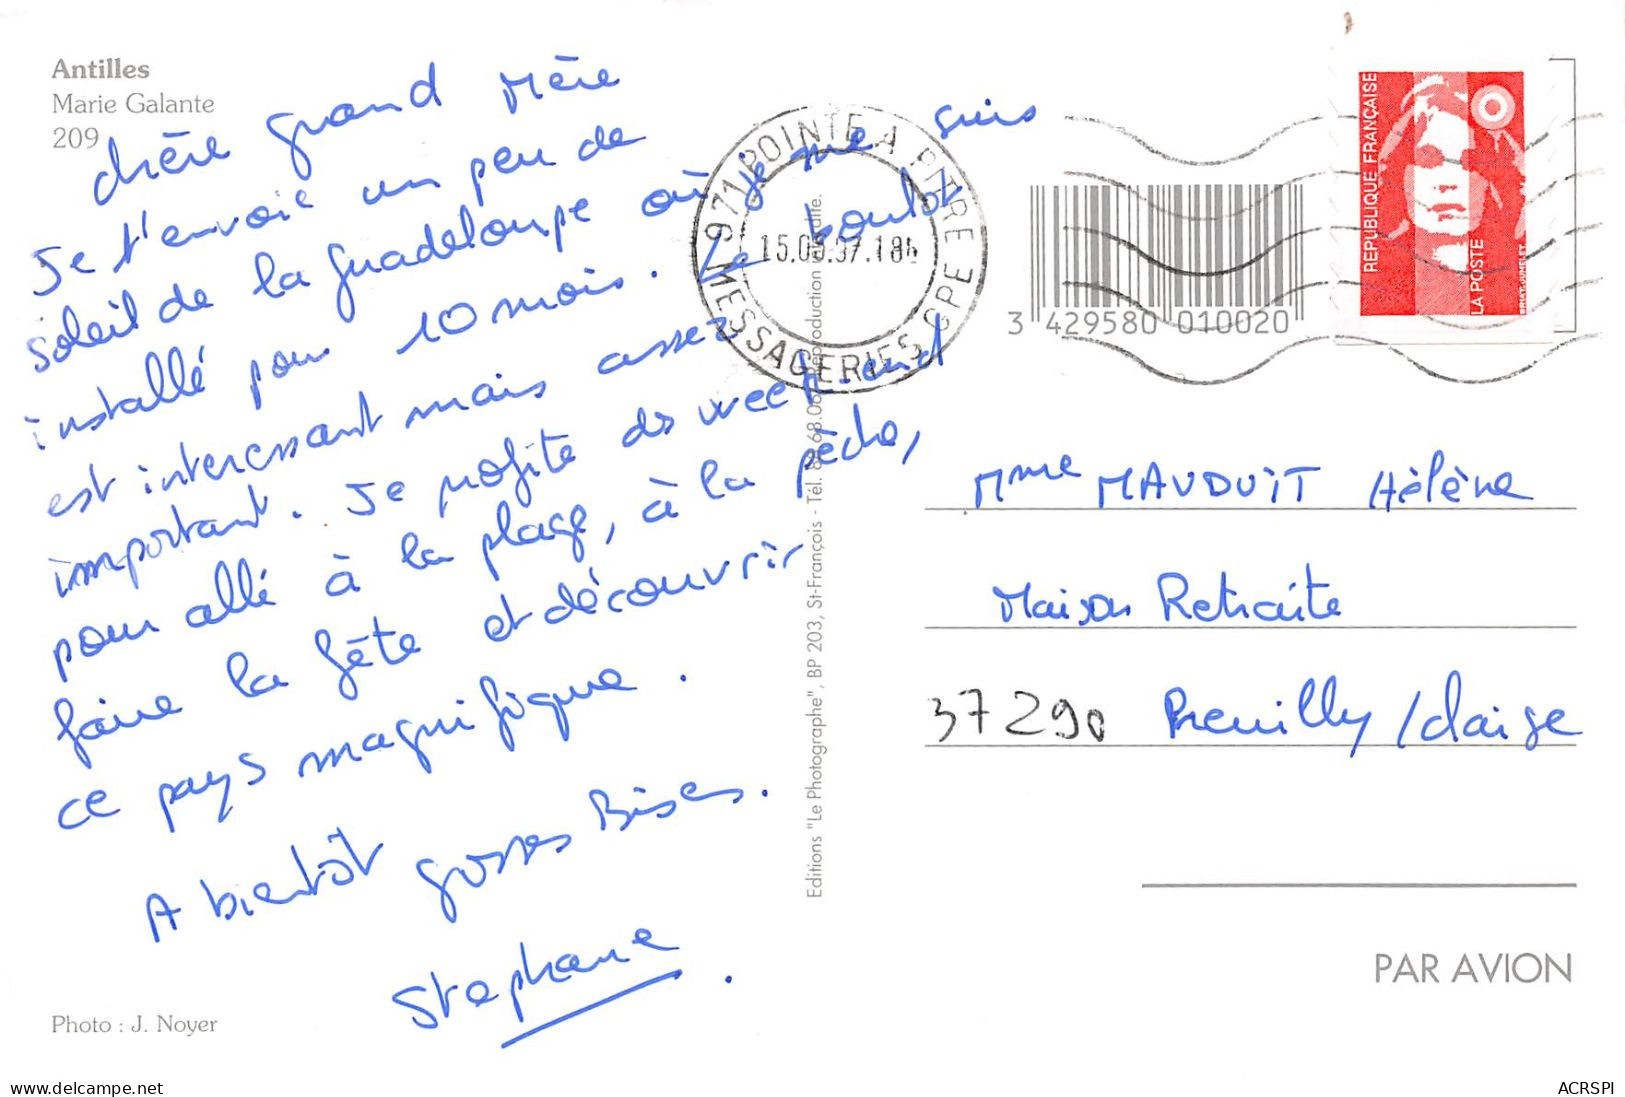 Antilles
Marie Galante
209
chère grand Mère
Je t'envoie un peu de
soleil de la guadeloupe où je me suis
installé pour 10 mois. Le boulot
est interessant mais assez
important. Je profite ds week-end
pour allé à la plage, à la pêche,
faire la fête et découvrir
ce pays magnifique.
A bientôt grosses Bises.
Stephane
Photo : J. Noyer
Editions "Le Photographe", BP 203, St-François - Tél.
971 POINTE A PITRE CPE
MESSAGERIES
REPUBLIQUE FRANÇAISE
LA POSTE
3 429580 010020
Mme MAUDUIT Hélène
Maison Retraite
37290 Preuilly/claise
PAR AVION
www.delcampe.net
ACRSPI